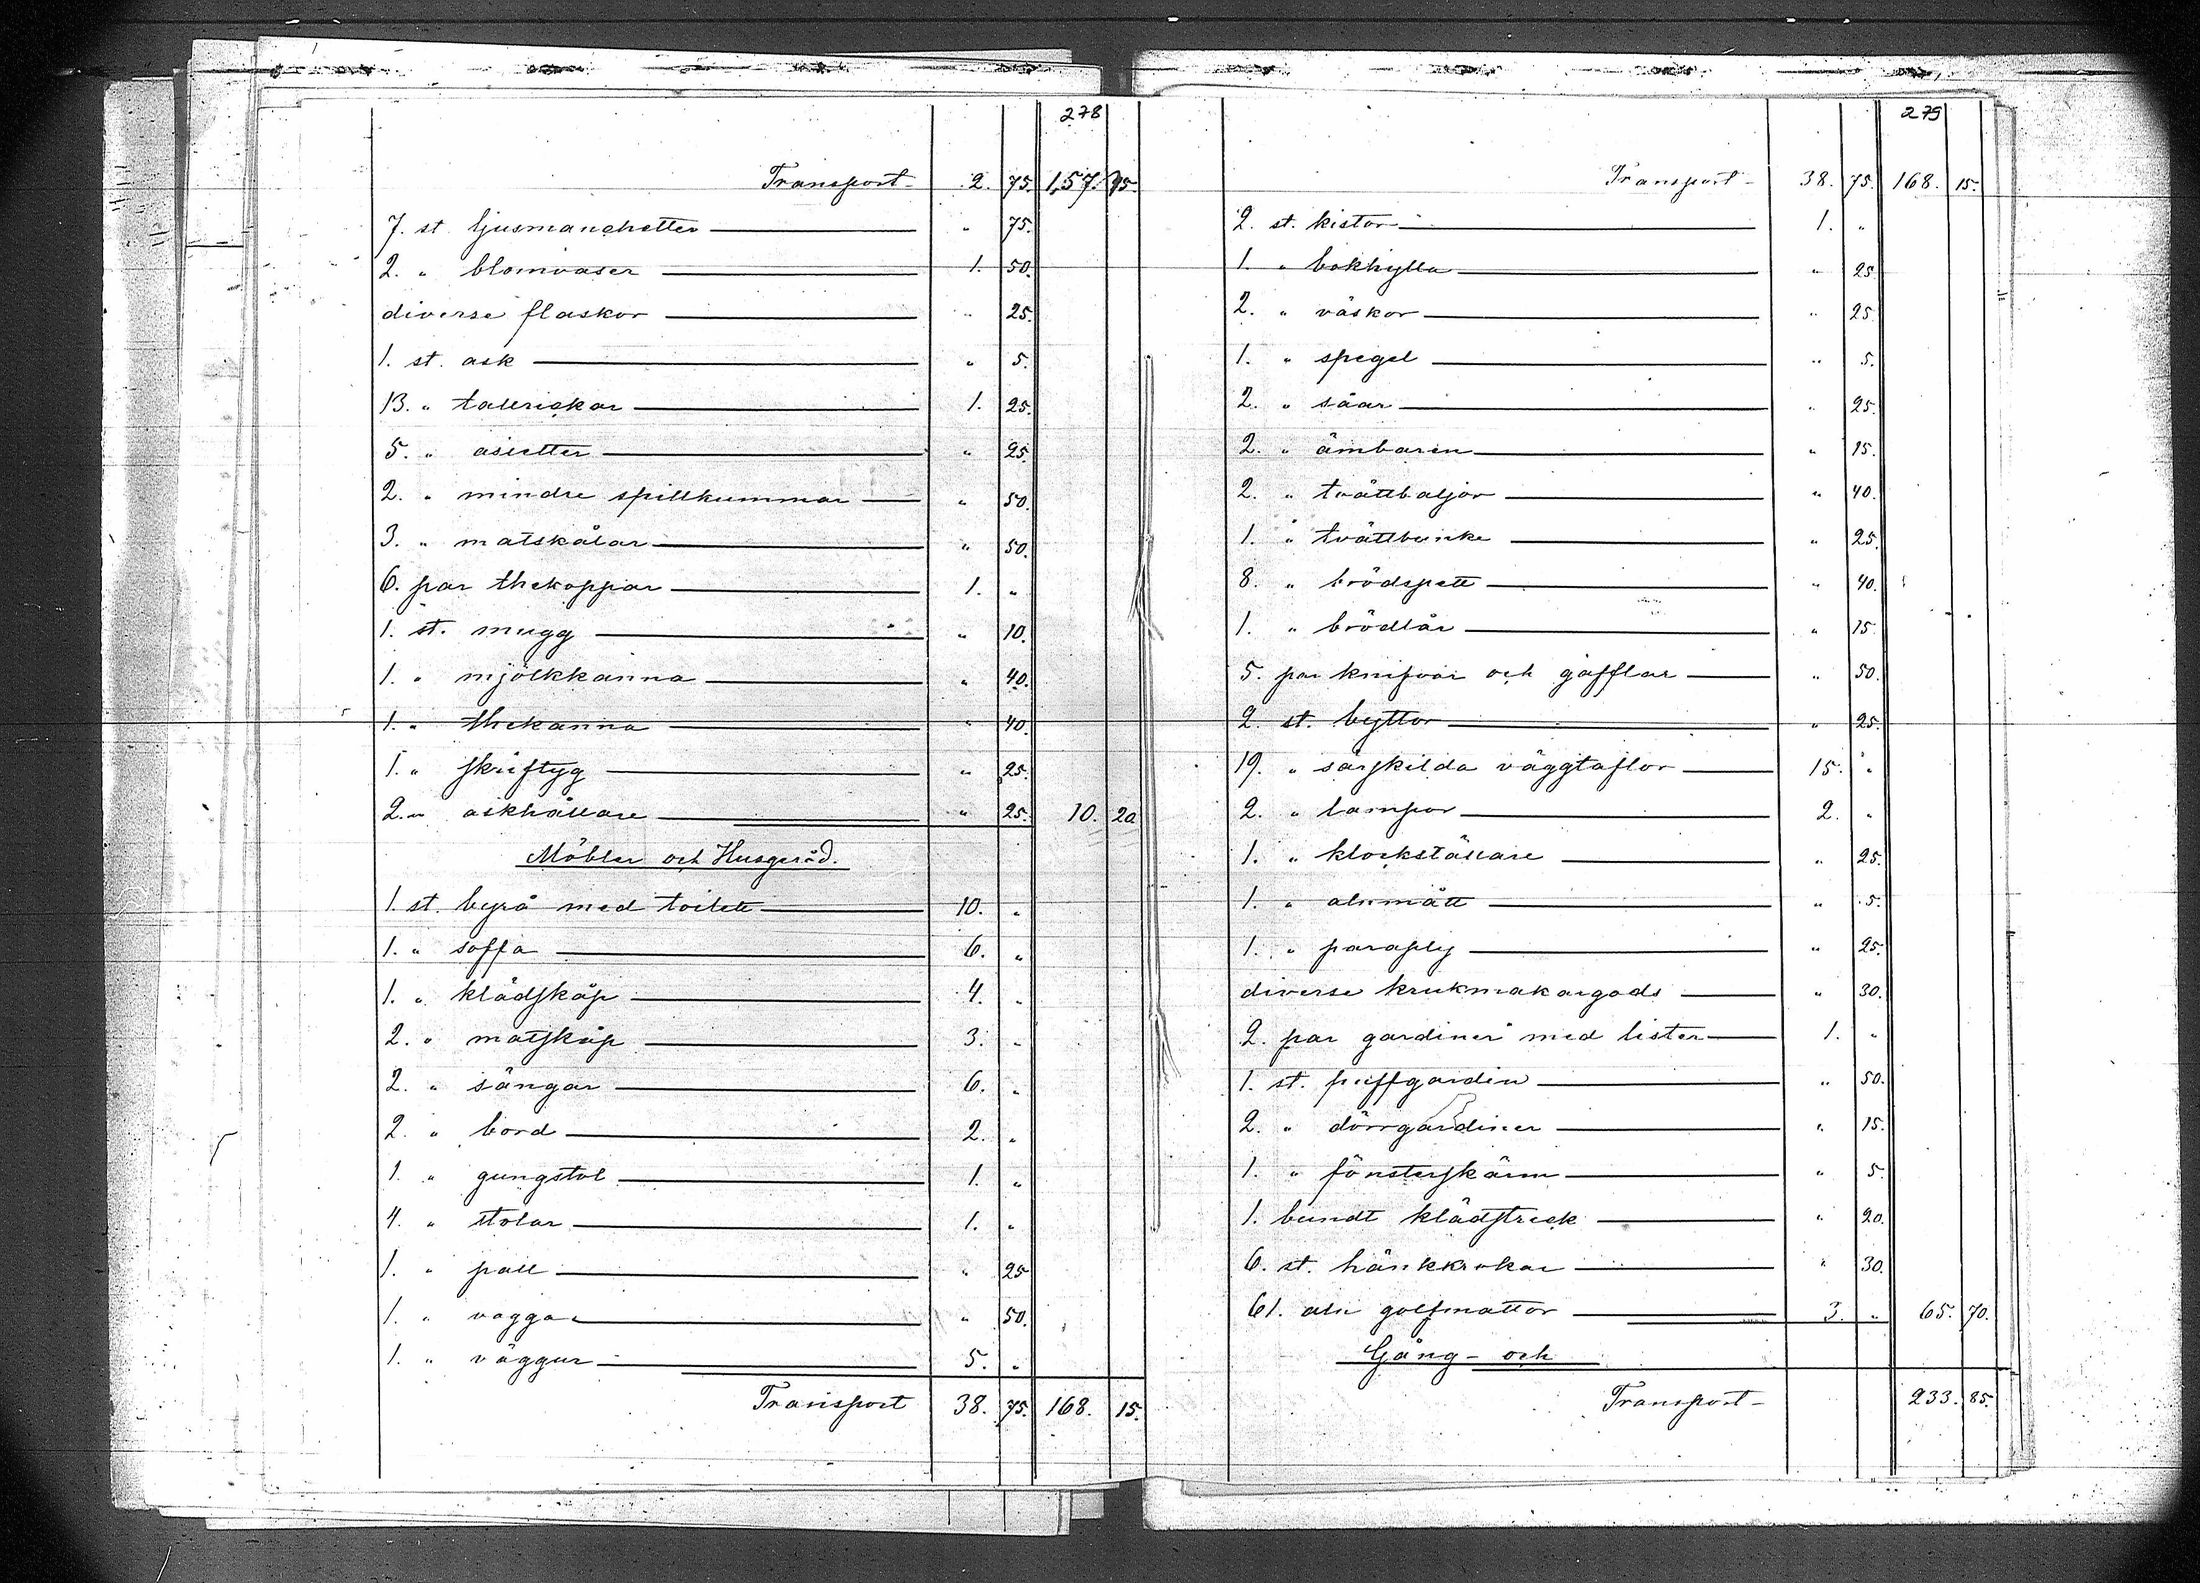 278
Transport - 2. 75. 157. 95.
7. st. ljusmanchetter — " 75.
2. " blomvaser — 1. 50.
diverse flaskor — " 25.
1. st. ask — " 5.
13. " talerickar — 1. 25.
5. " asietter — " 25.
2. " mindre spillkummar — " 50.
3. " matskålar — " 50.
6. par thekoppar — 1. "
1. st. mugg — " 10.
1. " mjölkkanna — " 40.
1. " thekanna — " 40.
1. " skriftyg — " 25.
2. " askhållare — " 25. 10. 20
Möbler och Husgeråd.
1. st. byrå med toilett — 10. "
1. " soffa — 6. "
1. " klädskåp — 4. "
2. " matskåp — 3. "
2. " sängar — 6. "
2. " bord — 2. "
1. " gungstol — 1. "
4. " stolar — 1. "
1. " pall — " 25
1. " vagga — " 50.
1. " väggur — 5. "
Transport 38. 75. 168. 15.
279
Transport - 38. 75. 168. 15.
2. st. kistor — 1. "
1. " bokhylla — " 25
2. " väskor — " 25
1. " spegel — " 5.
2. " såar — " 25.
2. " ämbaren — " 15.
2. " tvättbaljor — " 40.
1. " tvättbunke — " 25.
8. " brödspett — " 40.
1. " brödlår — " 15
5. par knifvar och gafflar — " 50.
2. st. byttor — " 25.
19. " särskilda väggtaflor — 15. "
2. " lampor — 2. "
1. " klockställare — " 25.
1. " alnmått — " 5.
1. " paraply — " 25.
diverse krukmakargods — " 30.
2. par gardiner med lister — 1. "
1. st. puffgardin — " 50.
2. " dörrgardiner — " 15.
1. " fönsterskärm — " 5.
1. bundt klädstreck — " 20.
6. st. hänkkrokar — " 30.
61. aln golfmattor — 3. " 65. 70.
Gång - och
Transport - 233. 85.